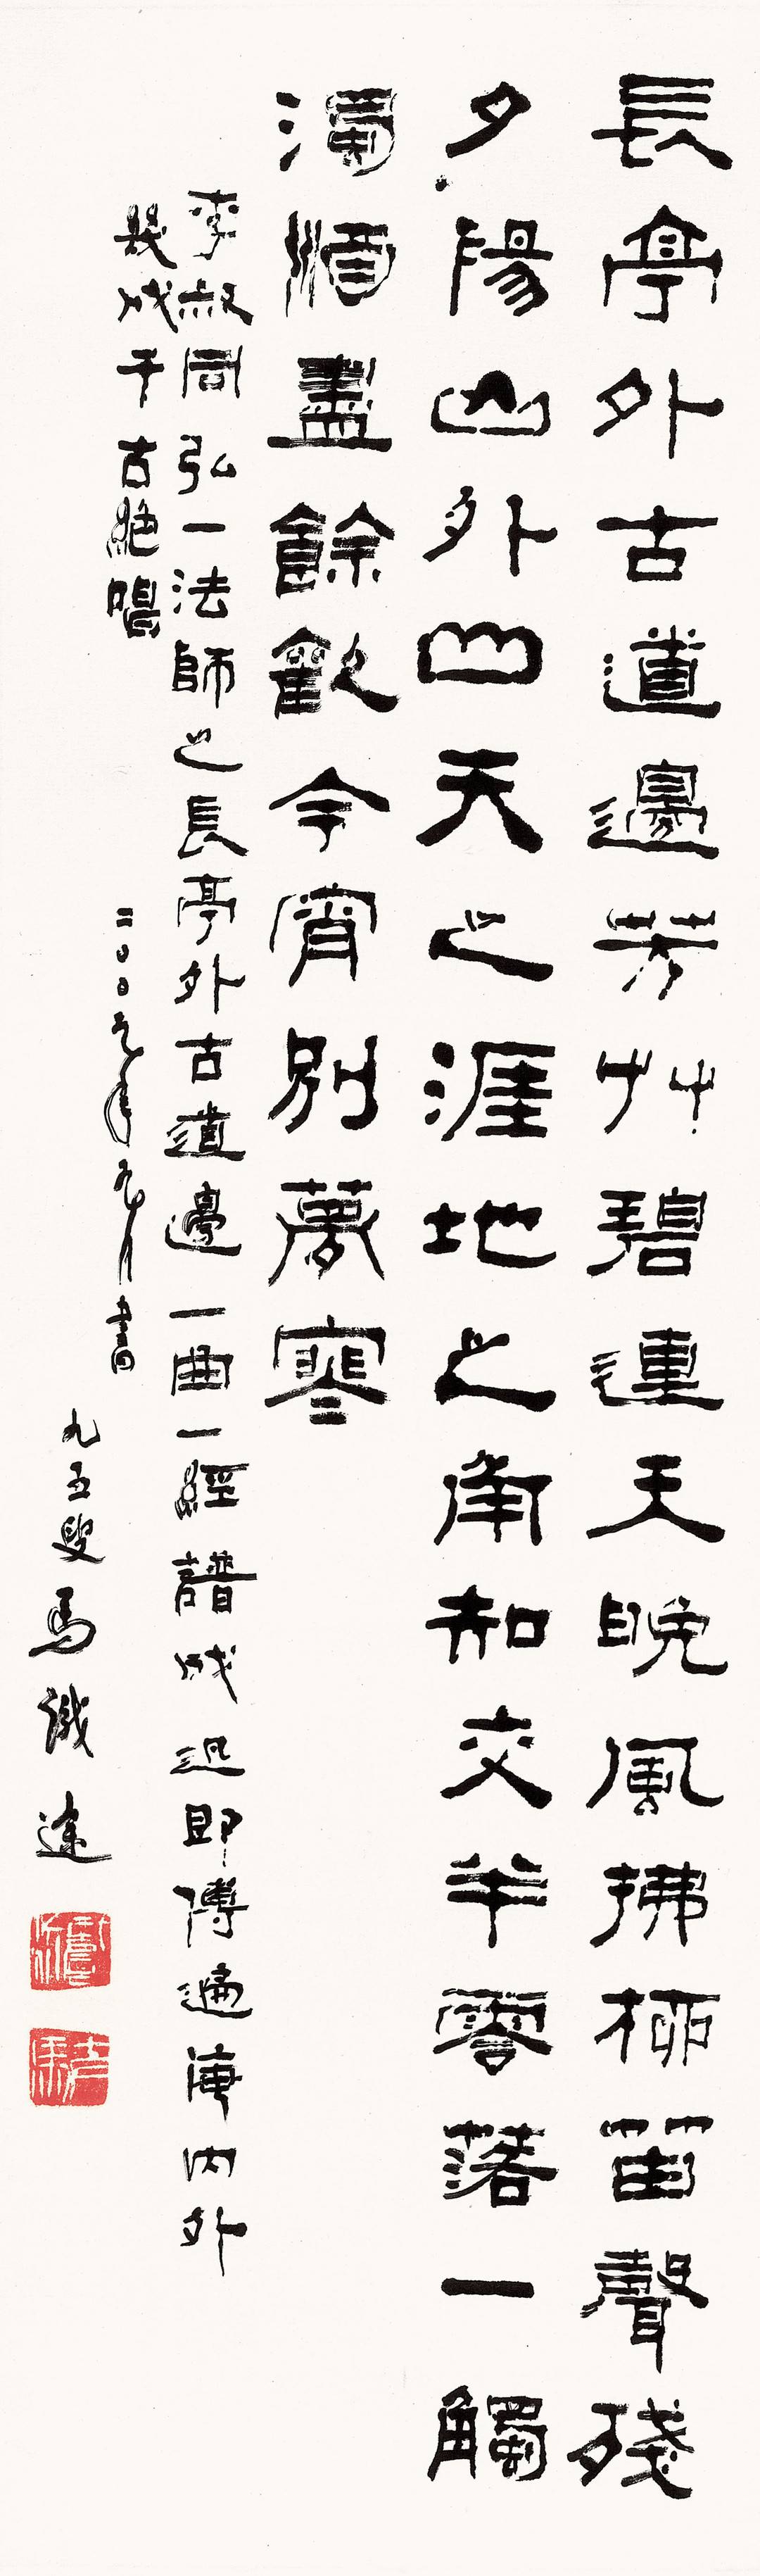 長亭外古道邊芳艸碧連天晚風拂柳笛聲殘
夕陽山外山天之涯地之角知交半零落一觸
濁酒盡餘歡今宵別夢寒
李叔同弘一法師之長亭外古道邊一曲一經譜成迅即傳遍海內外
幾成千古絕唱 二〇〇九年九月書
九五叟馬識途